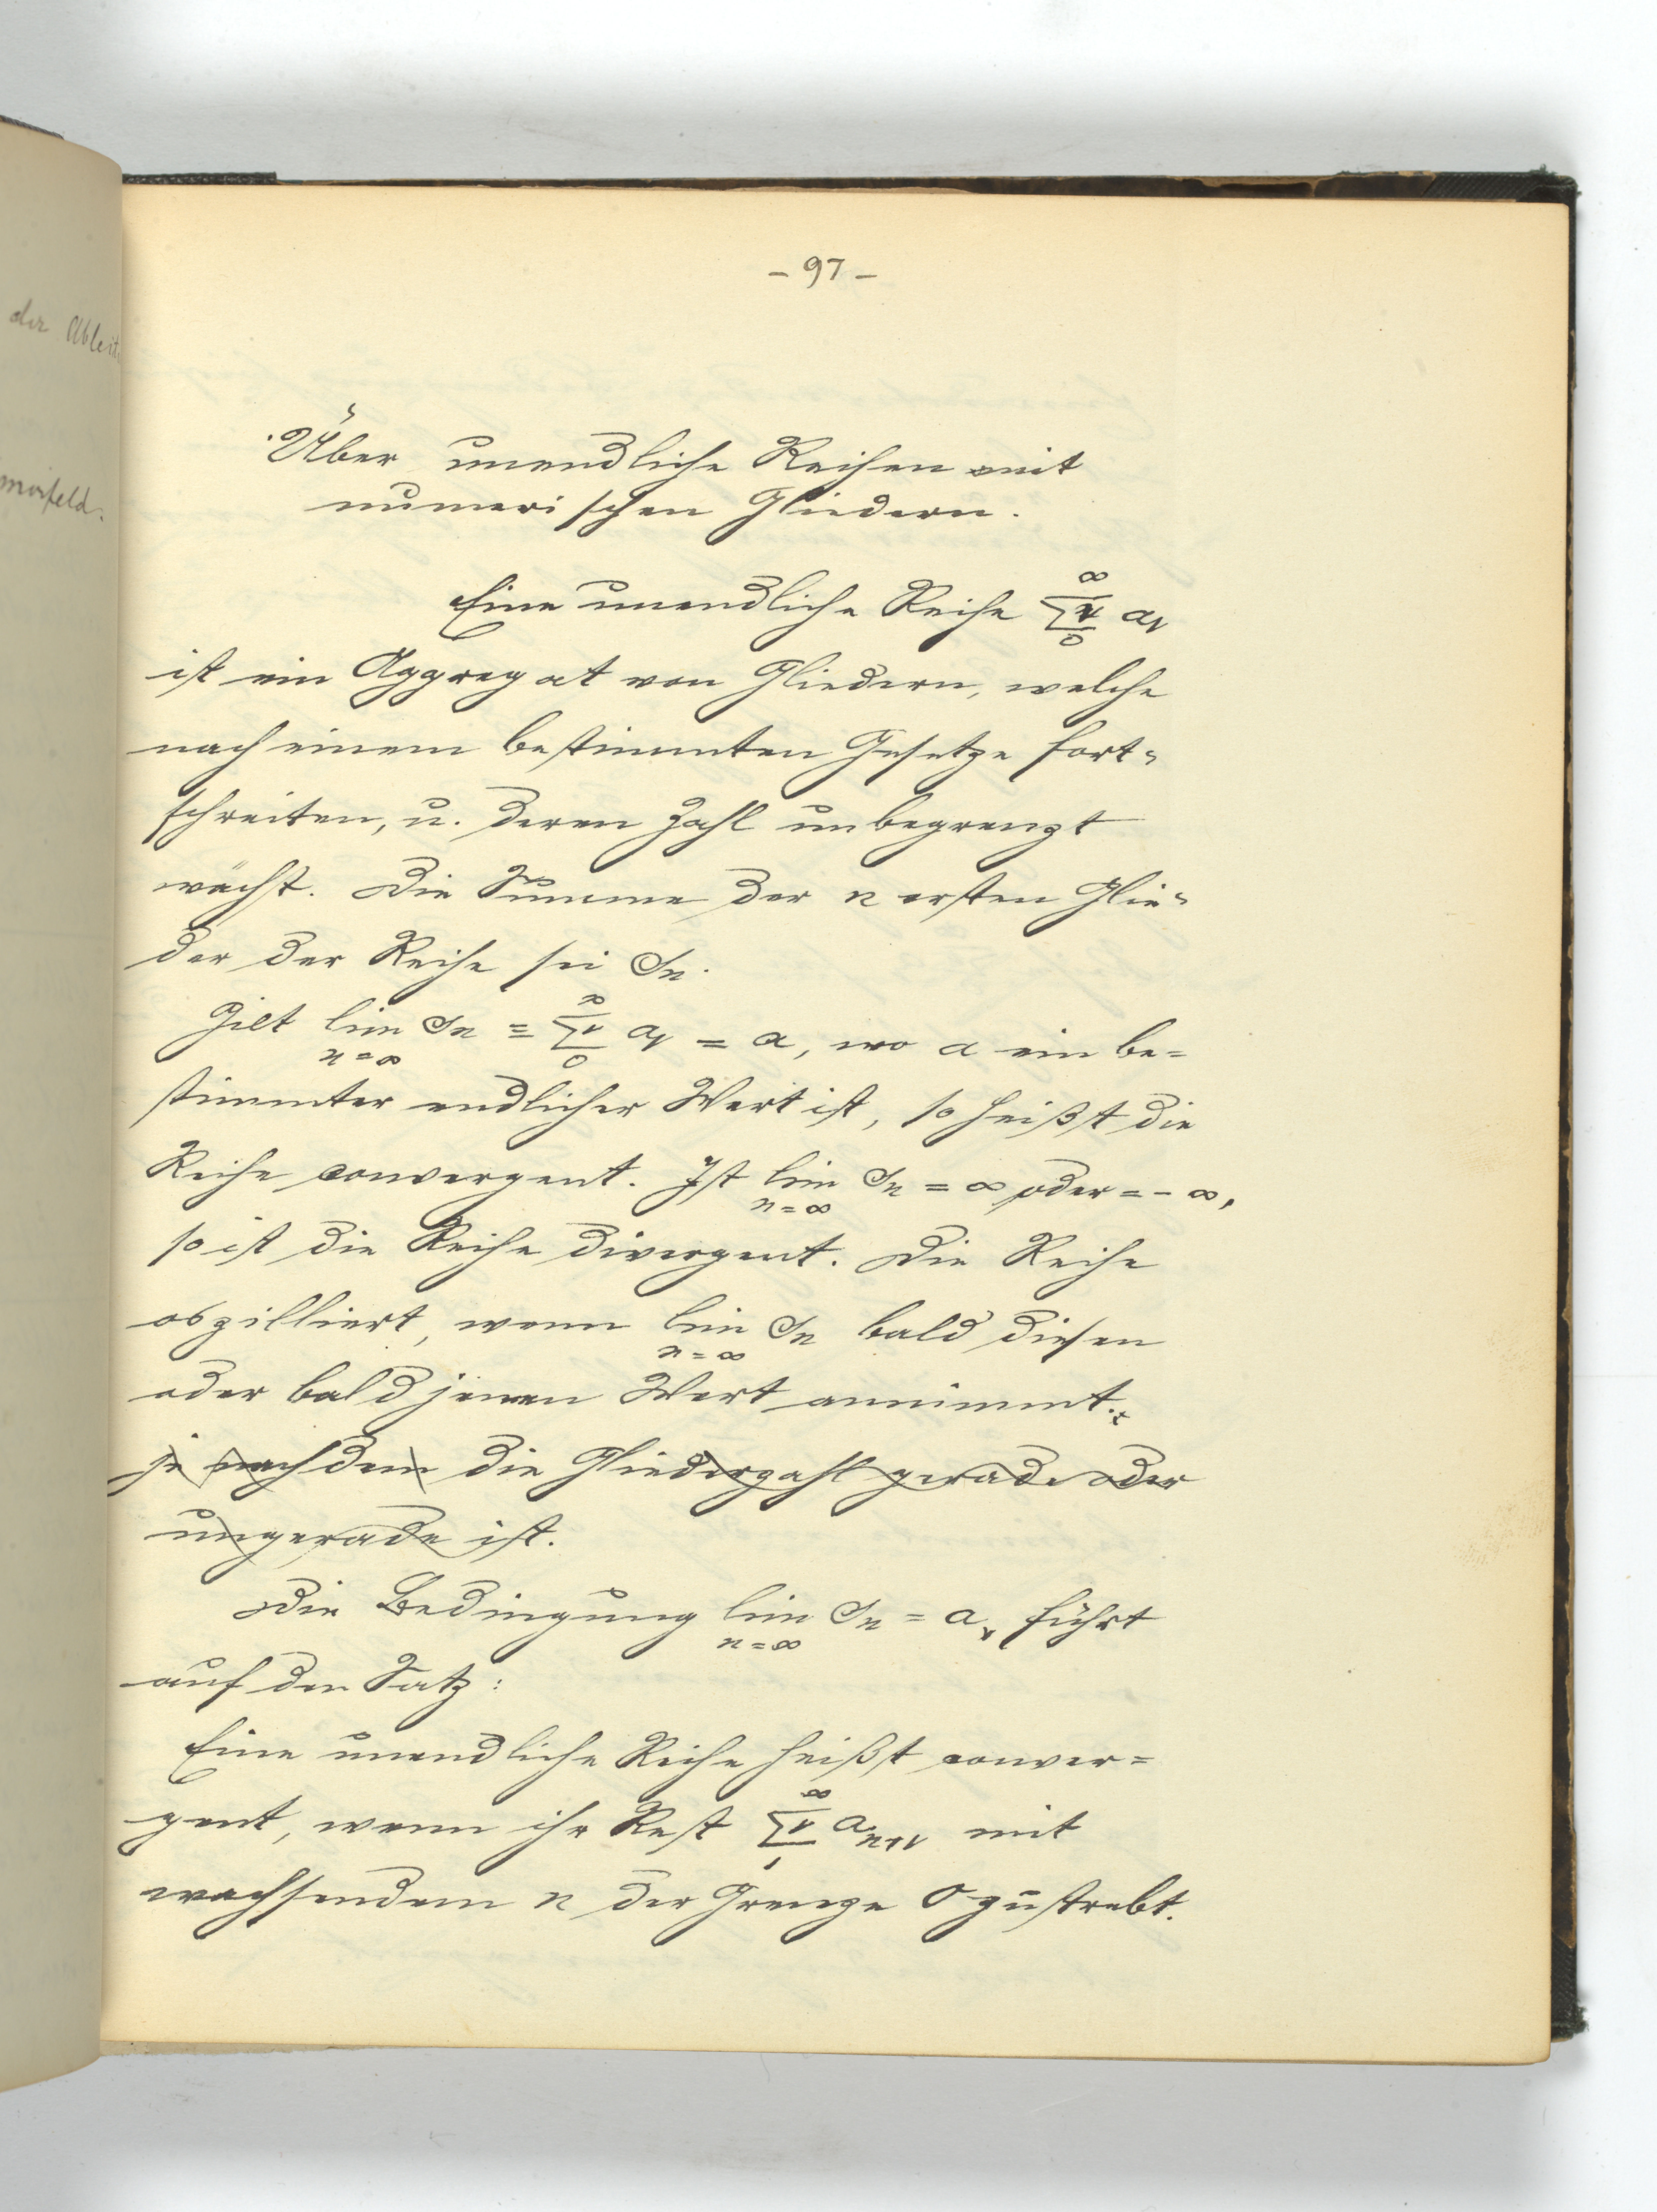 der Ableit
- 97 -
Über unendliche Reihen mit
numerischen Gliedern.
Eine unendliche Reihe ∑ν₀^∞ aν
ist ein Aggregat von Gliedern, welche
nach einem bestimmten Gesetze fort=
schreiten, u. deren Zahl unbegrenzt
wächst. Die Summe der n ersten Glie=
der der Reihe sei Sn.
Gilt lim n=∞ Sn = ∑ν₀^∞ aν = a, wo a ein be=
stimmter endlicher Wert ist, so heißt die
Reihe convergent. Ist lim n=∞ Sn = ∞ oder = - ∞,
so ist die Reihe divergent. Die Reihe
oszilliert, wenn lim n=∞ Sn bald diesen
oder bald jenen Wert annimmt.
je nachdem die Gliederzahl gerade oder
ungerade ist.
Die Bedingung lim n=∞ Sn = a, führt
auf den Satz:
Eine unendliche Reihe heißt conver=
gent, wenn ihr Rest ∑ν₁^∞ an+ν mit
wachsendem n der Grenze 0 zustrebt.